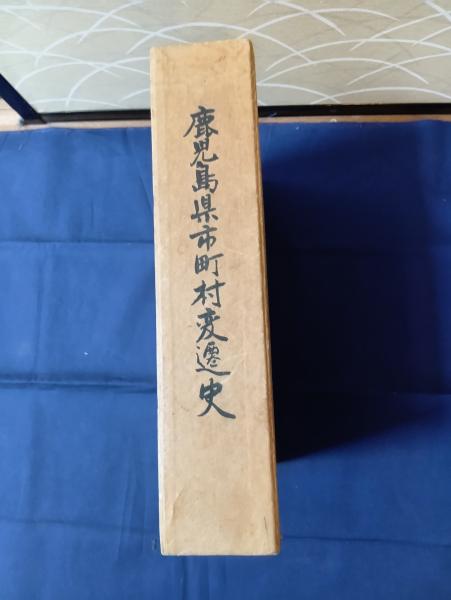 鹿児島県市町村変遷史